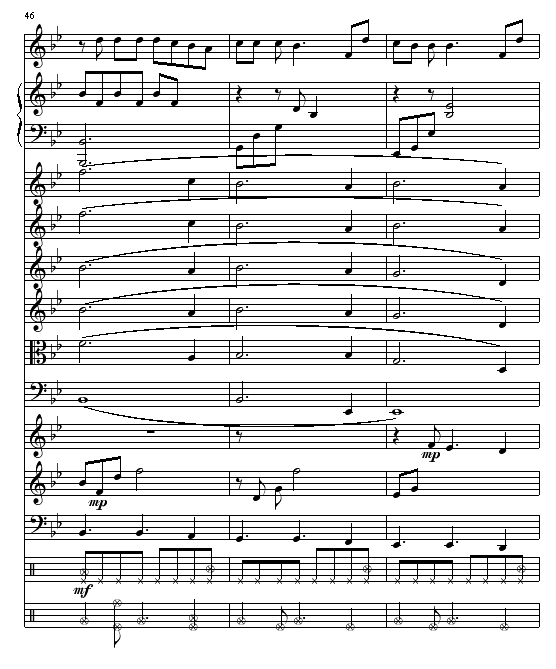 46
mp
mp
mf